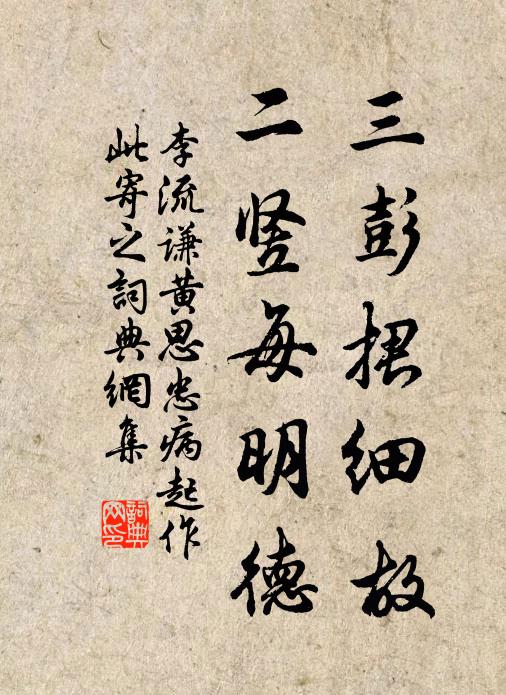 三彭捃细故
二竖每明德
李流谦黄思忠病起作
此寄之詞典網集
詞典網印